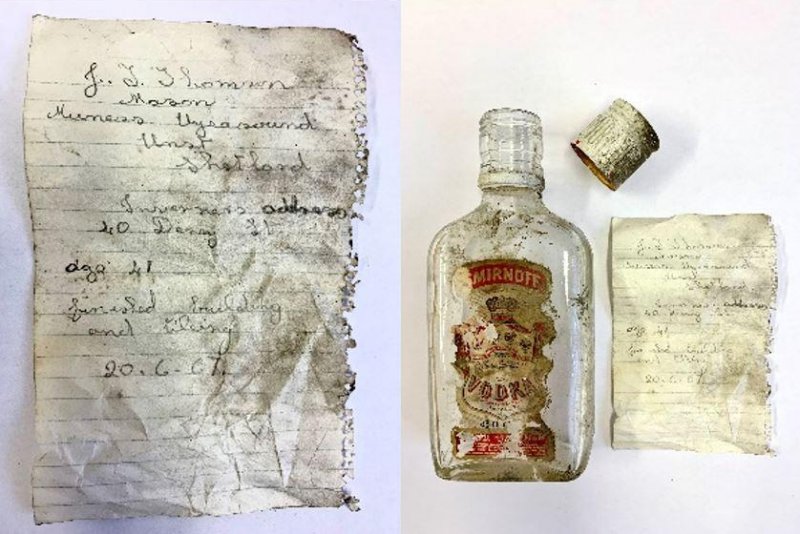 J. T. Thomson
Mason
Muness Uyeasound
Unst
Shetland
Inverness address
40 Deny St
age 41
finished building
and tiling
20.6.67.
SMIRNOFF
VODKA
J. T. Thomson
Mason
Muness Uyeasound
Unst
Shetland
Inverness address
40 Deny St
age 41
finished building
and tiling
20.6.67.